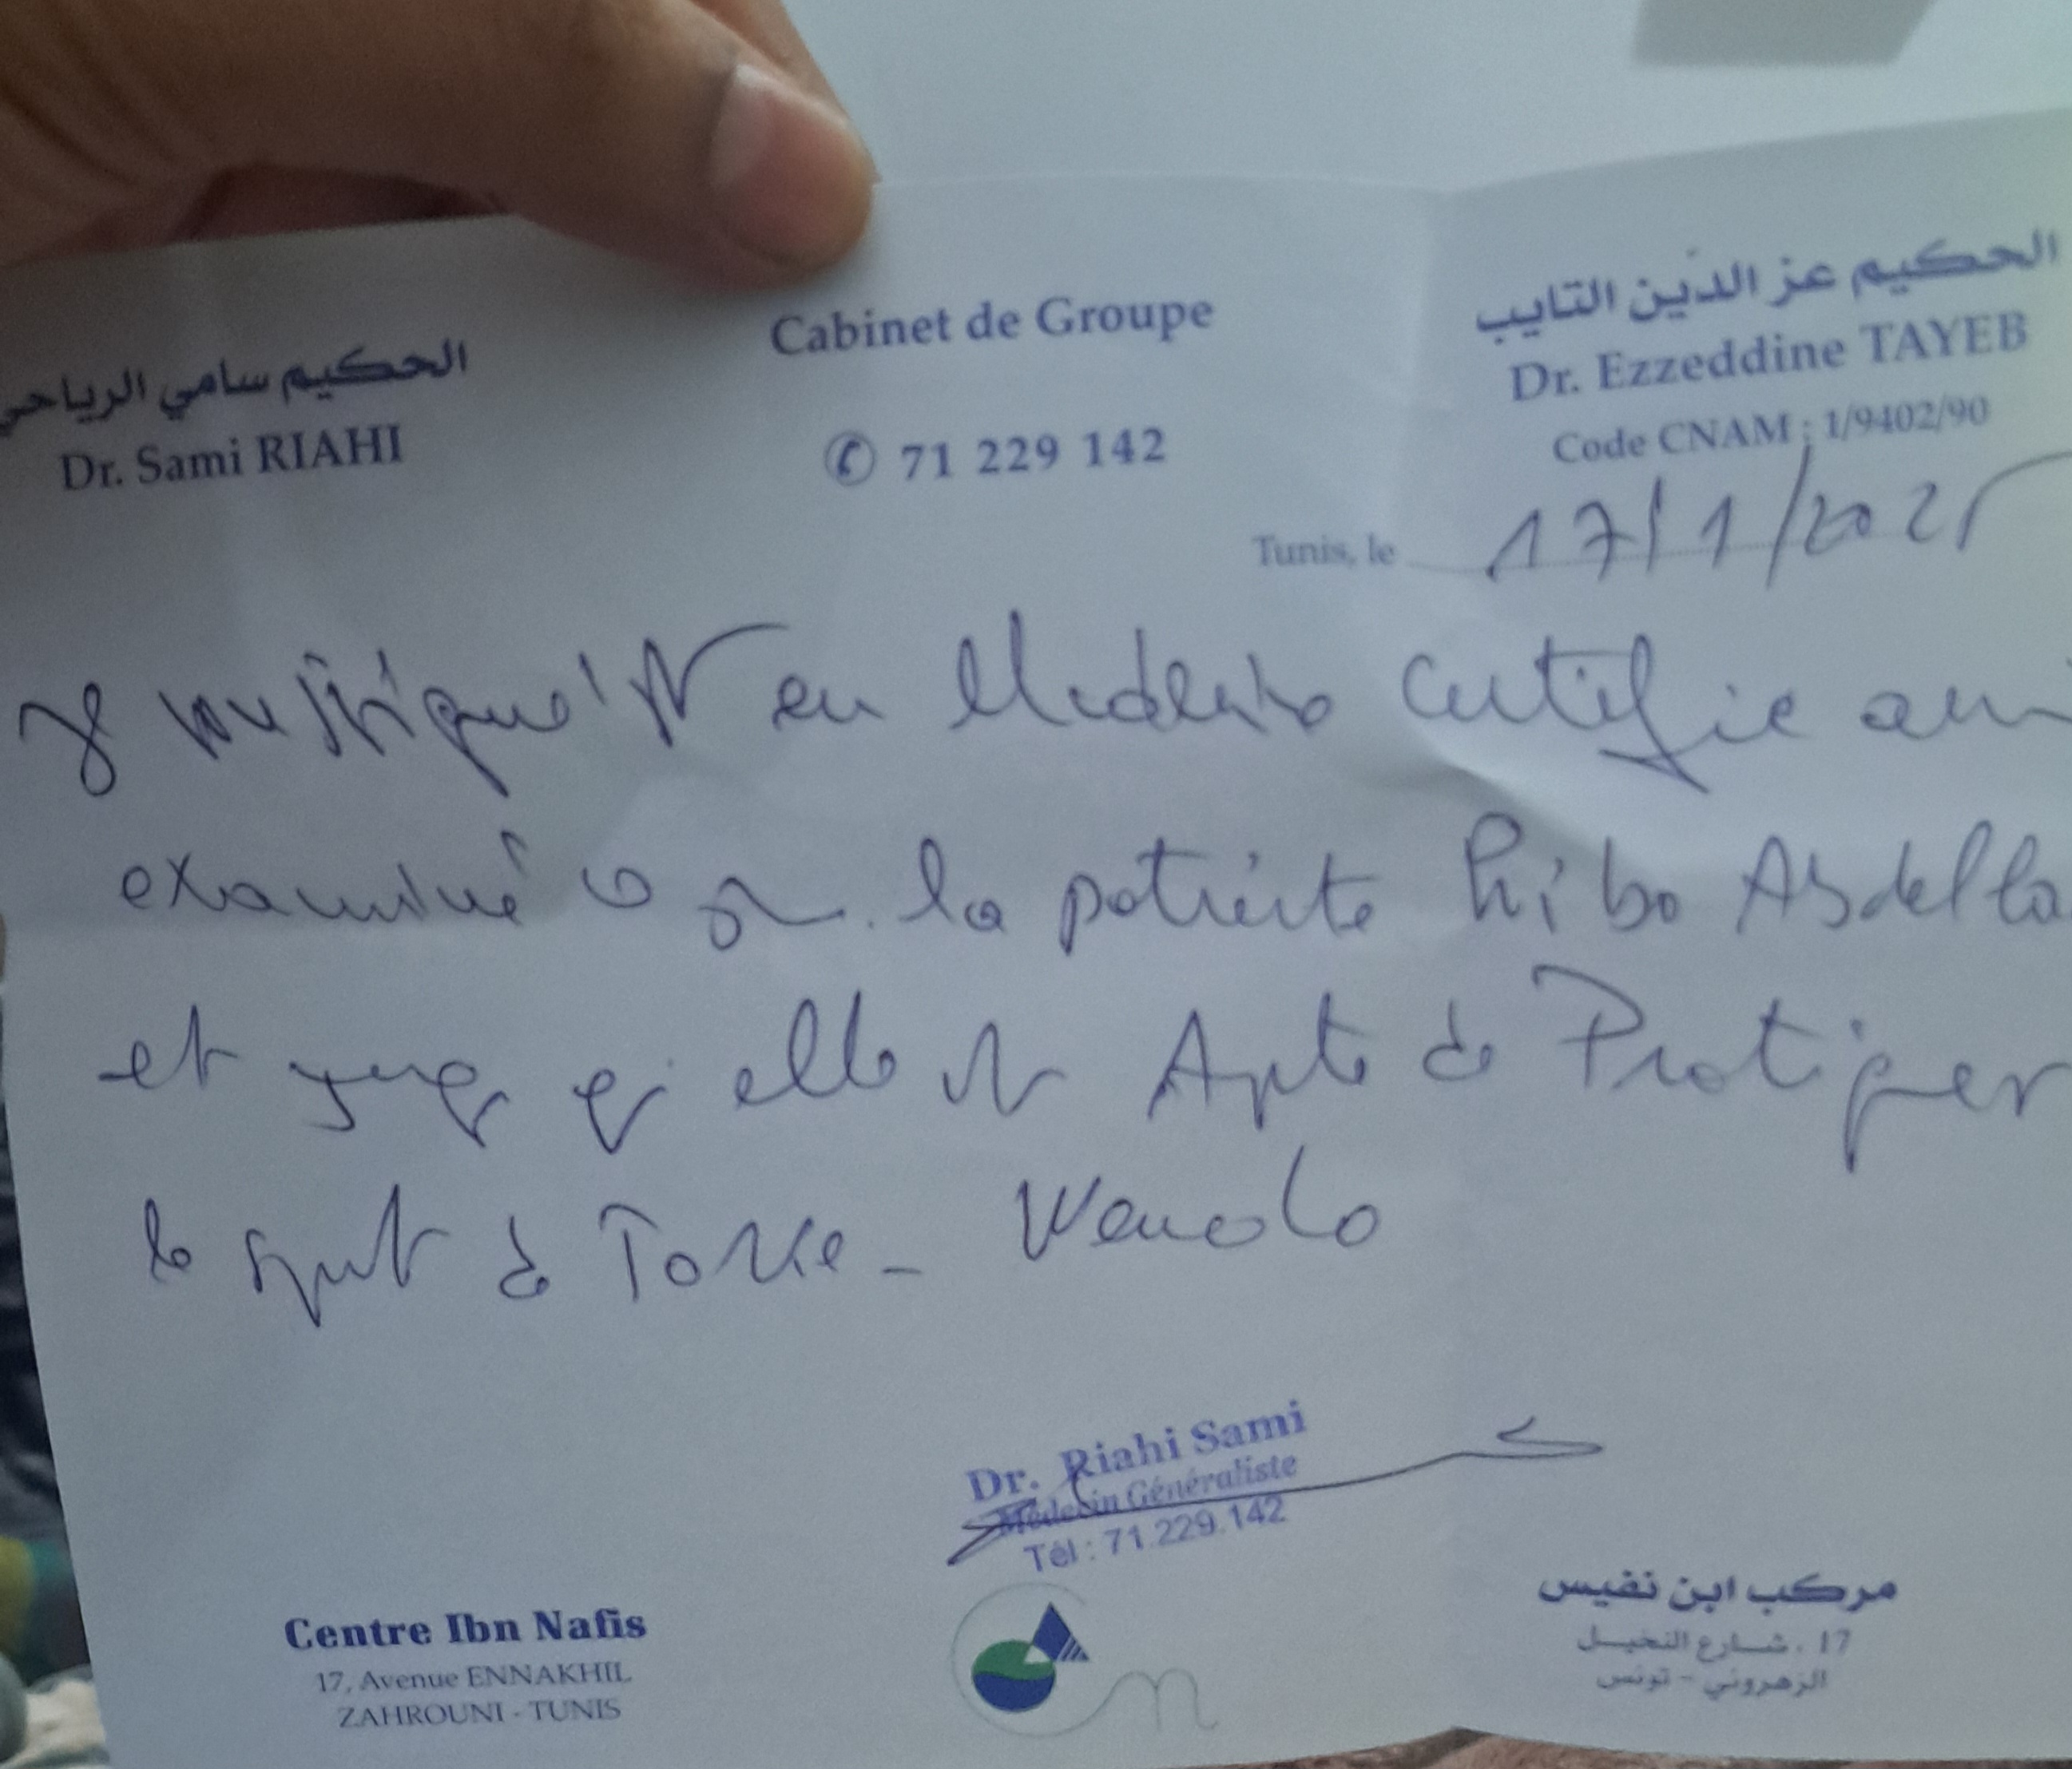 الحكيم سامي الرياحي
Dr. Sami RIAHI
Cabinet de Groupe
✆ 71 229 142
الحكيم عز الدين التايب
Dr. Ezzeddine TAYEB
Code CNAM : 1/9402/90
Tunis, le 17/1/2025
en Medecine certifie
examiné la patiente Hiba Abdella
et juge qu'elle est Apte à Pratiquer
le sport
Dr. Riahi Sami
Médecin Généraliste
Tél : 71.229.142
Centre Ibn Nafis
17, Avenue ENNAKHIL
ZAHROUNI - TUNIS
مركب ابن نفيس
17 . شارع النخيل
الزهروني - تونس